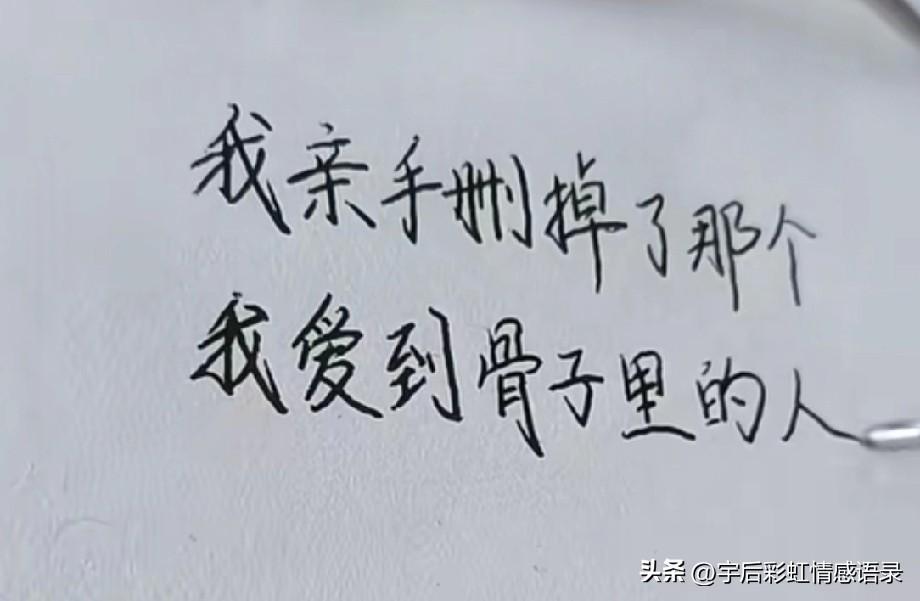 我亲手删掉了那个
我爱到骨子里的人
头条 @宇后彩虹情感语录